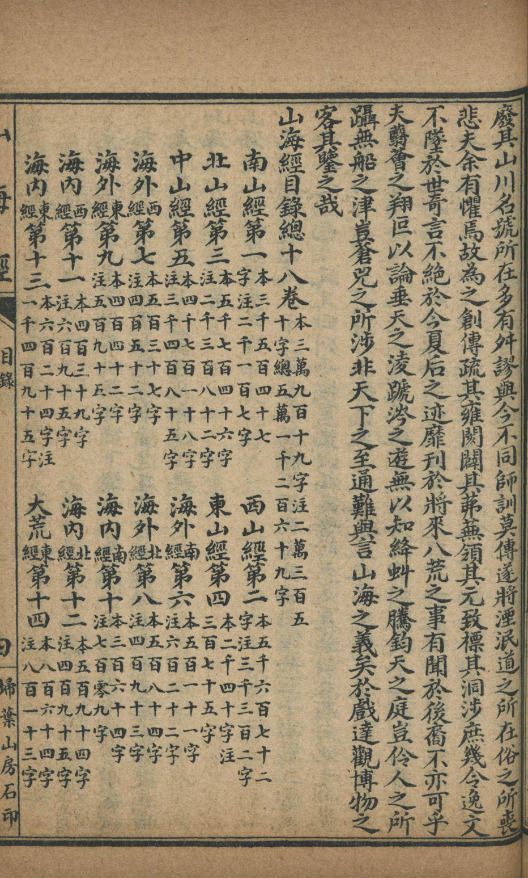 廢其山川名號所在多有舛謬與今不同師訓莫傳遂將湮泯道之所在俗之所喪
悲夫余有懼焉故為之創傳疏其雍閡闢其茀蕪領其元致標其洞涉庶幾令逸文
不墜於世奇言不絕於今夏后之迹靡刊於將來八荒之事有聞於後裔不亦可乎
夫翳薈之翔叵以論垂天之淩蹏涔之遊無以知絳虯之騰鈞天之庭豈伶人之所
躡無船之津豈蒼兕之所涉非天下之至通難與言山海之義矣於戲達觀博物之
客其鑒之哉
山海經目錄總十八卷本三萬九百十九字注二萬三百五十字總五萬一千二百六十九字
南山經第一本三千五百四十七字注二千一百七字
西山經第二本五千六百七十二字注三千三百二字
北山經第三本五千七百四十六字注二千三百八十二字
東山經第四本二千四十字注三百七十五字
中山經第五本四千七百一十八字注三千四百八十五字
海外南經第六本五百一十一字注六百二十二字
海外西經第七本五百三十七字注四百五十二字
海外北經第八本五百八十四字注四百九十三字
海外東經第九本四百四十二字注五百九十五字
海內南經第十本三百六十四字注七百零九字
海內西經第十一本四百三十九字注六百九十五字
海內北經第十二本五百九十四字注四百九十五字
海內東經第十三本六百二十四字注一千四百九十五字
大荒東經第十四本八百六十四字注八百一十三字
山海經
目錄
四
掃葉山房石印